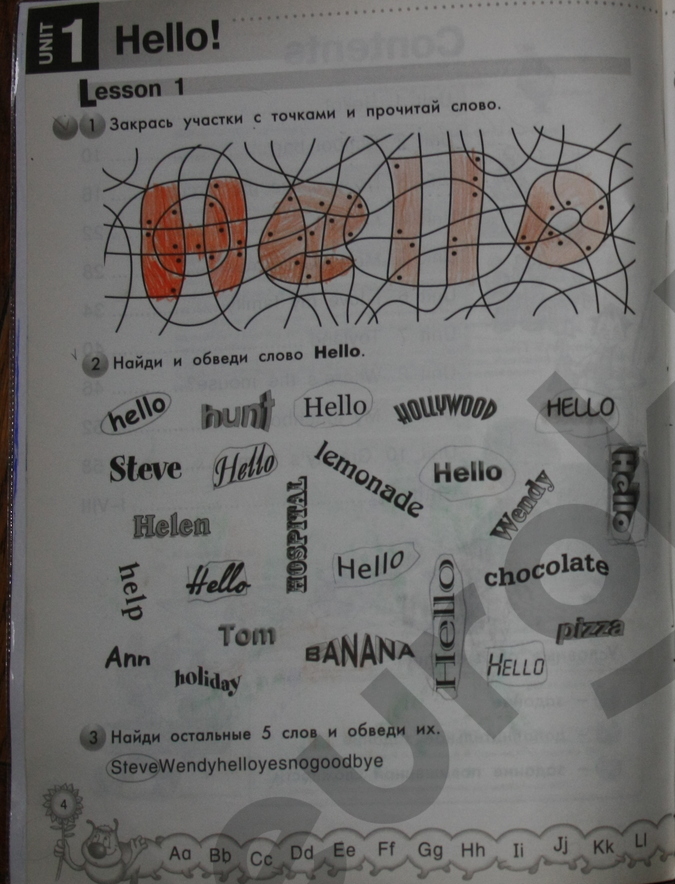 UNIT 1 Hello!
Lesson 1
1 Закрась участки с точками и прочитай слово.
Hello
2 Найди и обведи слово Hello.
hello hunt Hello HOLLYWOOD HELLO
Steve Hello lemonade Hello Wendy Hello
Helen HOSPITAL
help Hello Hello Hello chocolate
Ann Tom BANANA pizza
holiday HELLO
3 Найди остальные 5 слов и обведи их.
SteveWendyhelloyesnogoodbye
4
Aa Bb Cc Dd Ee Ff Gg Hh Ii Jj Kk Ll